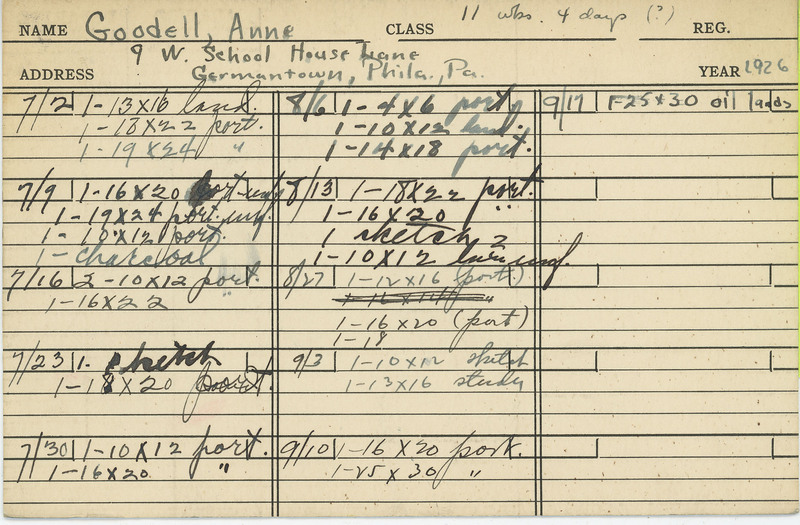 NAME Goodell, Anne CLASS 11 wks. 4 days (?) REG.
9 W. School House Lane
ADDRESS Germantown, Phila., Pa. YEAR 1926
7/2 1-13x16 land.
1-18x22 port.
1-19x24 "
7/9 1-16x20 port-unf.
1-19x24 port. unf.
1-10x12 port.
1-charcoal
7/16 2-10x12 port.
1-16x22 "
7/23 1. sketch
1-18x20 port.
7/30 1-10x12 port.
1-16x20 "
8/6 1-4x6 port.
1-10x12 land.
1-14x18 port.
8/13 1-18x22 port.
1-16x20 "
1 sketch
1-10x12 unf.
8/27 1-12x16 (port.)
1-16x20 (port)
1-18
9/3 1-10x12 sketch
1-13x16 study
9/10 1-16x20 port.
1-25x30 "
9/17 F25x30 oil